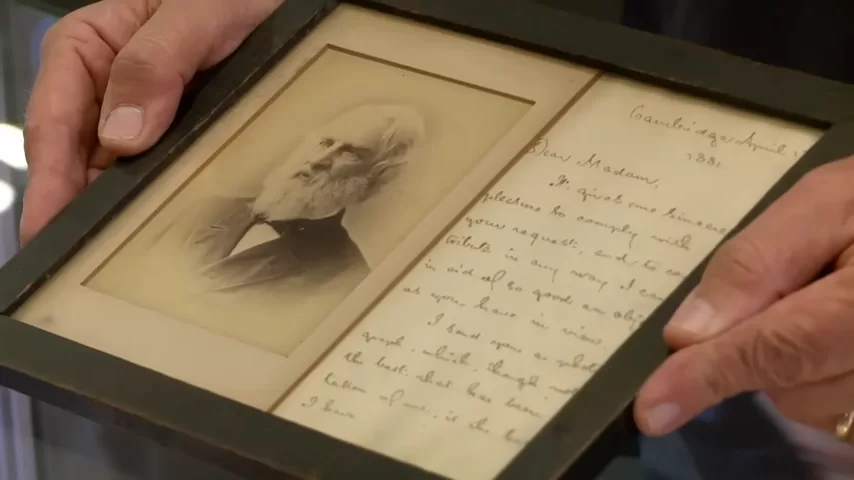 Cambridge April
1881.
Dear Madam,
It gives me sincere
pleasure to comply with
your request, and to co
tribute in any way I can
in aid of so good an obj
as you have in view.
I send you a photo
graph, which, though not
the best that has been
taken of me, is the be
I have